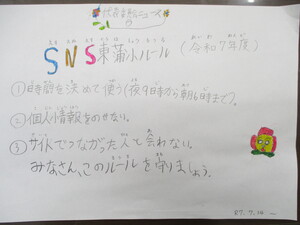 SNS東蒲小ルール(令和7年度)
①時間を決めて使う(夜9時から朝6時まで)。
②個人情報をのせない。
③サイトでつながった人と会わない。
みなさん、このルールを守りましょう。